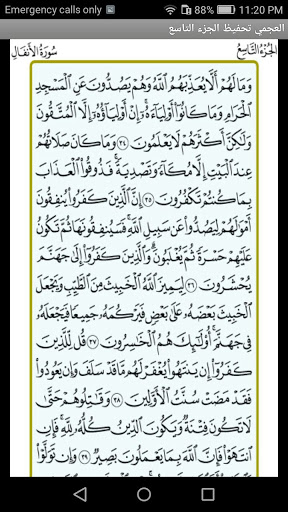 Emergency calls only
11:20 PM
العجمي تحفيظ الجزء التاسع
الجزء التاسع
سورة الأنفال
وَمَا لَهُمْ أَلَّا يُعَذِّبَهُمُ اللَّهُ وَهُمْ يَصُدُّونَ عَنِ الْمَسْجِدِ
الْحَرَامِ وَمَا كَانُوا أَوْلِيَاءَهُ إِنْ أَوْلِيَاؤُهُ إِلَّا الْمُتَّقُونَ
وَلَٰكِنَّ أَكْثَرَهُمْ لَا يَعْلَمُونَ ٣٤ وَمَا كَانَ صَلَاتُهُمْ
عِندَ الْبَيْتِ إِلَّا مُكَاءً وَتَصْدِيَةً فَذُوقُوا الْعَذَابَ
بِمَا كُنتُمْ تَكْفُرُونَ ٣٥ إِنَّ الَّذِينَ كَفَرُوا يُنفِقُونَ
أَمْوَالَهُمْ لِيَصُدُّوا عَن سَبِيلِ اللَّهِ فَسَيُنفِقُونَهَا ثُمَّ تَكُونُ
عَلَيْهِمْ حَسْرَةً ثُمَّ يُغْلَبُونَ وَالَّذِينَ كَفَرُوا إِلَىٰ جَهَنَّمَ
يُحْشَرُونَ ٣٦ لِيَمِيزَ اللَّهُ الْخَبِيثَ مِنَ الطَّيِّبِ وَيَجْعَلَ
الْخَبِيثَ بَعْضَهُ عَلَىٰ بَعْضٍ فَيَرْكُمَهُ جَمِيعًا فَيَجْعَلَهُ
فِي جَهَنَّمَ أُولَٰئِكَ هُمُ الْخَاسِرُونَ ٣٧ قُل لِّلَّذِينَ
كَفَرُوا إِن يَنتَهُوا يُغْفَرْ لَهُم مَّا قَدْ سَلَفَ وَإِن يَعُودُوا
فَقَدْ مَضَتْ سُنَّتُ الْأَوَّلِينَ ٣٨ وَقَاتِلُوهُمْ حَتَّىٰ
لَا تَكُونَ فِتْنَةٌ وَيَكُونَ الدِّينُ كُلُّهُ لِلَّهِ فَإِنِ
انتَهَوْا فَإِنَّ اللَّهَ بِمَا يَعْمَلُونَ بَصِيرٌ ٣٩ وَإِن تَوَلَّوْا